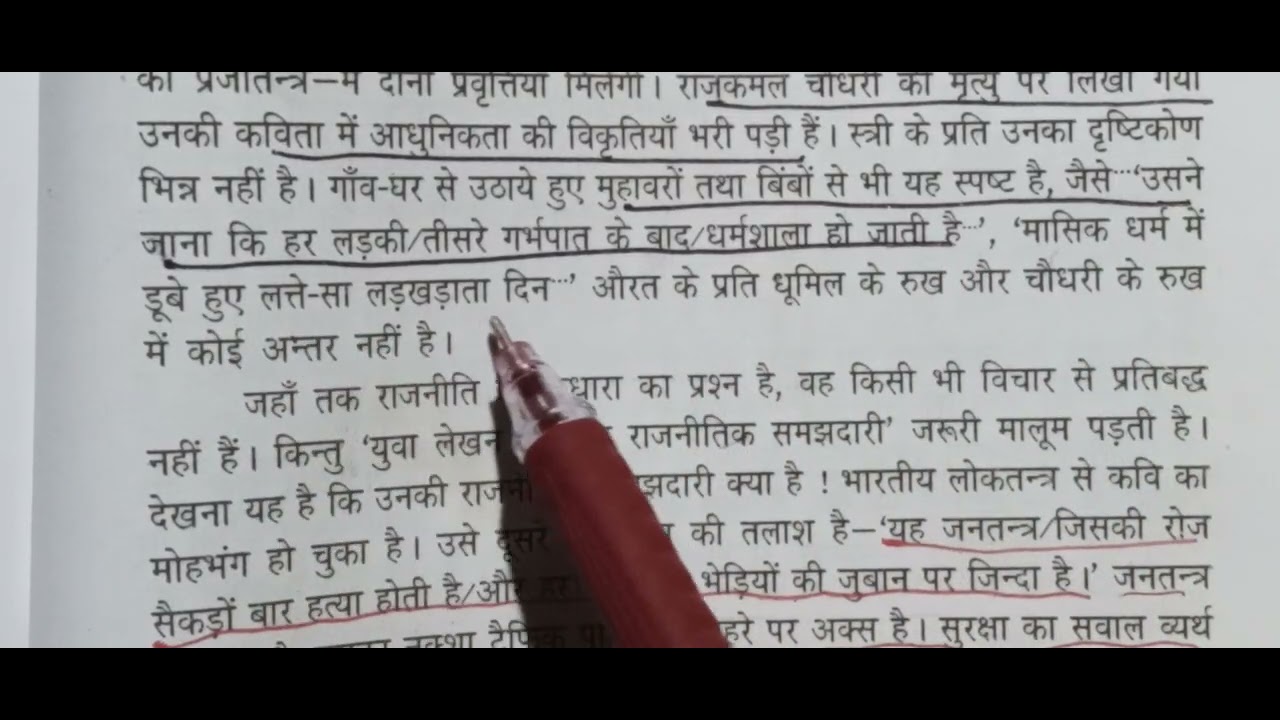 का प्रजातन्त्र—में दोनों प्रवृत्तियाँ मिलेंगी। राजकमल चौधरी की मृत्यु पर लिखी गयी
उनकी कविता में आधुनिकता की विकृतियाँ भरी पड़ी हैं। स्त्री के प्रति उनका दृष्टिकोण
भिन्न नहीं है। गाँव-घर से उठाये हुए मुहावरों तथा बिंबों से भी यह स्पष्ट है, जैसे…‘उसने
जाना कि हर लड़की/तीसरे गर्भपात के बाद/धर्मशाला हो जाती है…’, ‘मासिक धर्म में
डूबे हुए लत्ते-सा लड़खड़ाता दिन…’ औरत के प्रति धूमिल के रुख और चौधरी के रुख
में कोई अन्तर नहीं है।
जहाँ तक राजनीति धारा का प्रश्न है, वह किसी भी विचार से प्रतिबद्ध
नहीं हैं। किन्तु ‘युवा लेखन राजनीतिक समझदारी’ जरूरी मालूम पड़ती है।
देखना यह है कि उनकी क्या है ! भारतीय लोकतन्त्र से कवि का
मोहभंग हो चुका है। उसे दूसरे की तलाश है—‘यह जनतन्त्र/जिसकी रोज
सैकड़ों बार हत्या होती है/और हर भेड़ियों की जुबान पर जिन्दा है।’ जनतन्त्र
नक्शा ट्रैफिक पर अक्स है। सुरक्षा का सवाल व्यर्थ